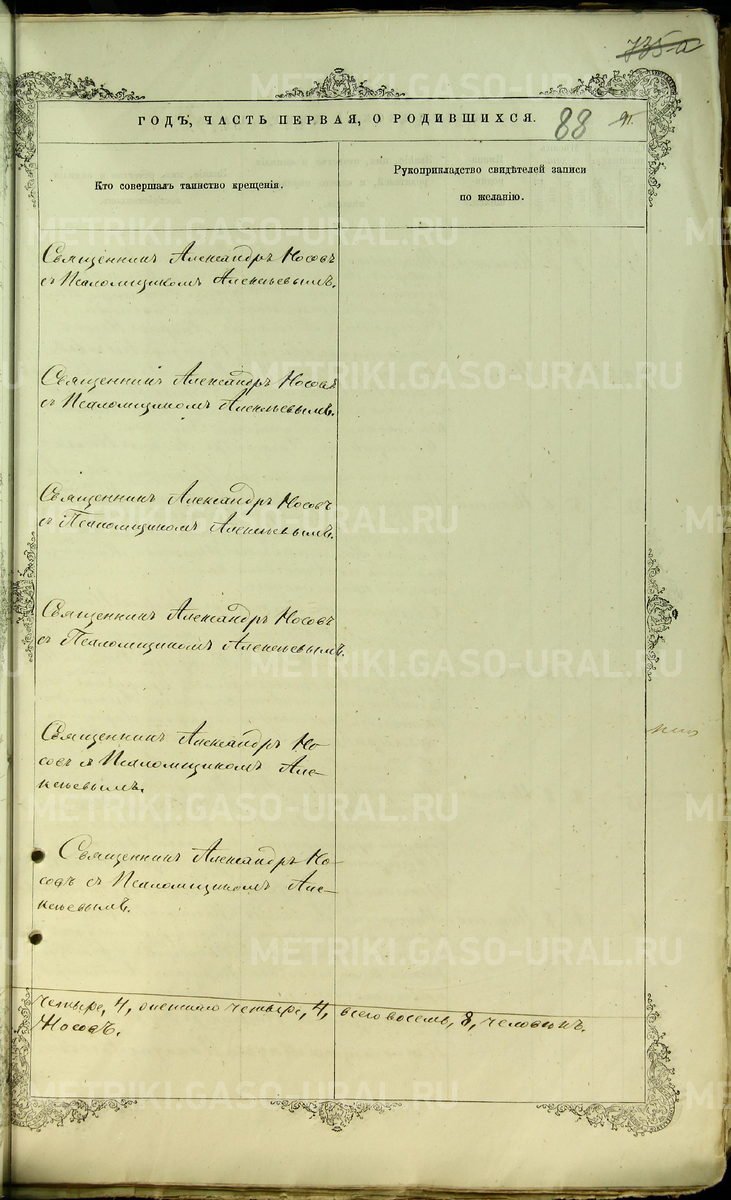 735-а
ГОДЪ, ЧАСТЬ ПЕРВАЯ, О РОДИВШИХСЯ.
88
91.
Кто совершалъ таинство крещенія.
Рукоприкладство свидѣтелей записи
по желанію.
Священникъ Александръ Носовъ
съ Псаломщикомъ Алексѣевымъ.
Священникъ Александръ Носовъ
съ Псаломщикомъ Алексѣевымъ.
Священникъ Александръ Носовъ
съ Псаломщикомъ Алексѣевымъ.
Священникъ Александръ Носовъ
съ Псаломщикомъ Алексѣевымъ.
Священникъ Александръ Но-
совъ съ Псаломщикомъ Але-
ксѣевымъ.
Священникъ Александръ Но-
совъ съ Псаломщикомъ Але-
ксѣевымъ.
четыре, 4, женскаго четыре, 4, всего восемь, 8, человѣкъ.
Носовъ.
METRIKI.GASO-URAL.RU